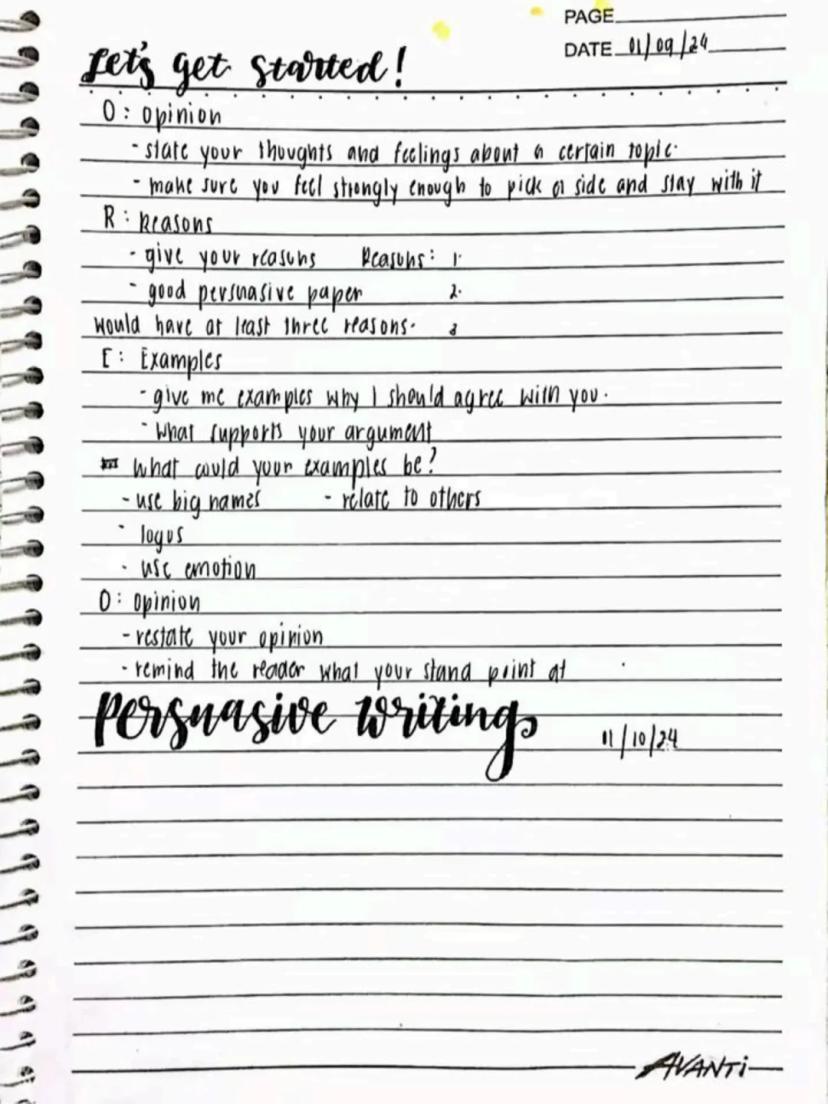 PAGE
DATE 01/09/24
Let's get started!
O: opinion
- state your thoughts and feelings about a certain topic.
- make sure you feel strongly enough to pick a side and stay with it
R: Reasons
- give your reasons Reasons: 1.
- good persuasive paper 2.
would have at least three reasons. 3
E: Examples
- give me examples why I should agree with you.
- What supports your argument
What could your examples be?
- use big names - relate to others
- logos
- use emotion
O: opinion
- restate your opinion
- remind the reader what your stand point at
Persuasive Writing
11/10/24
AVANTi